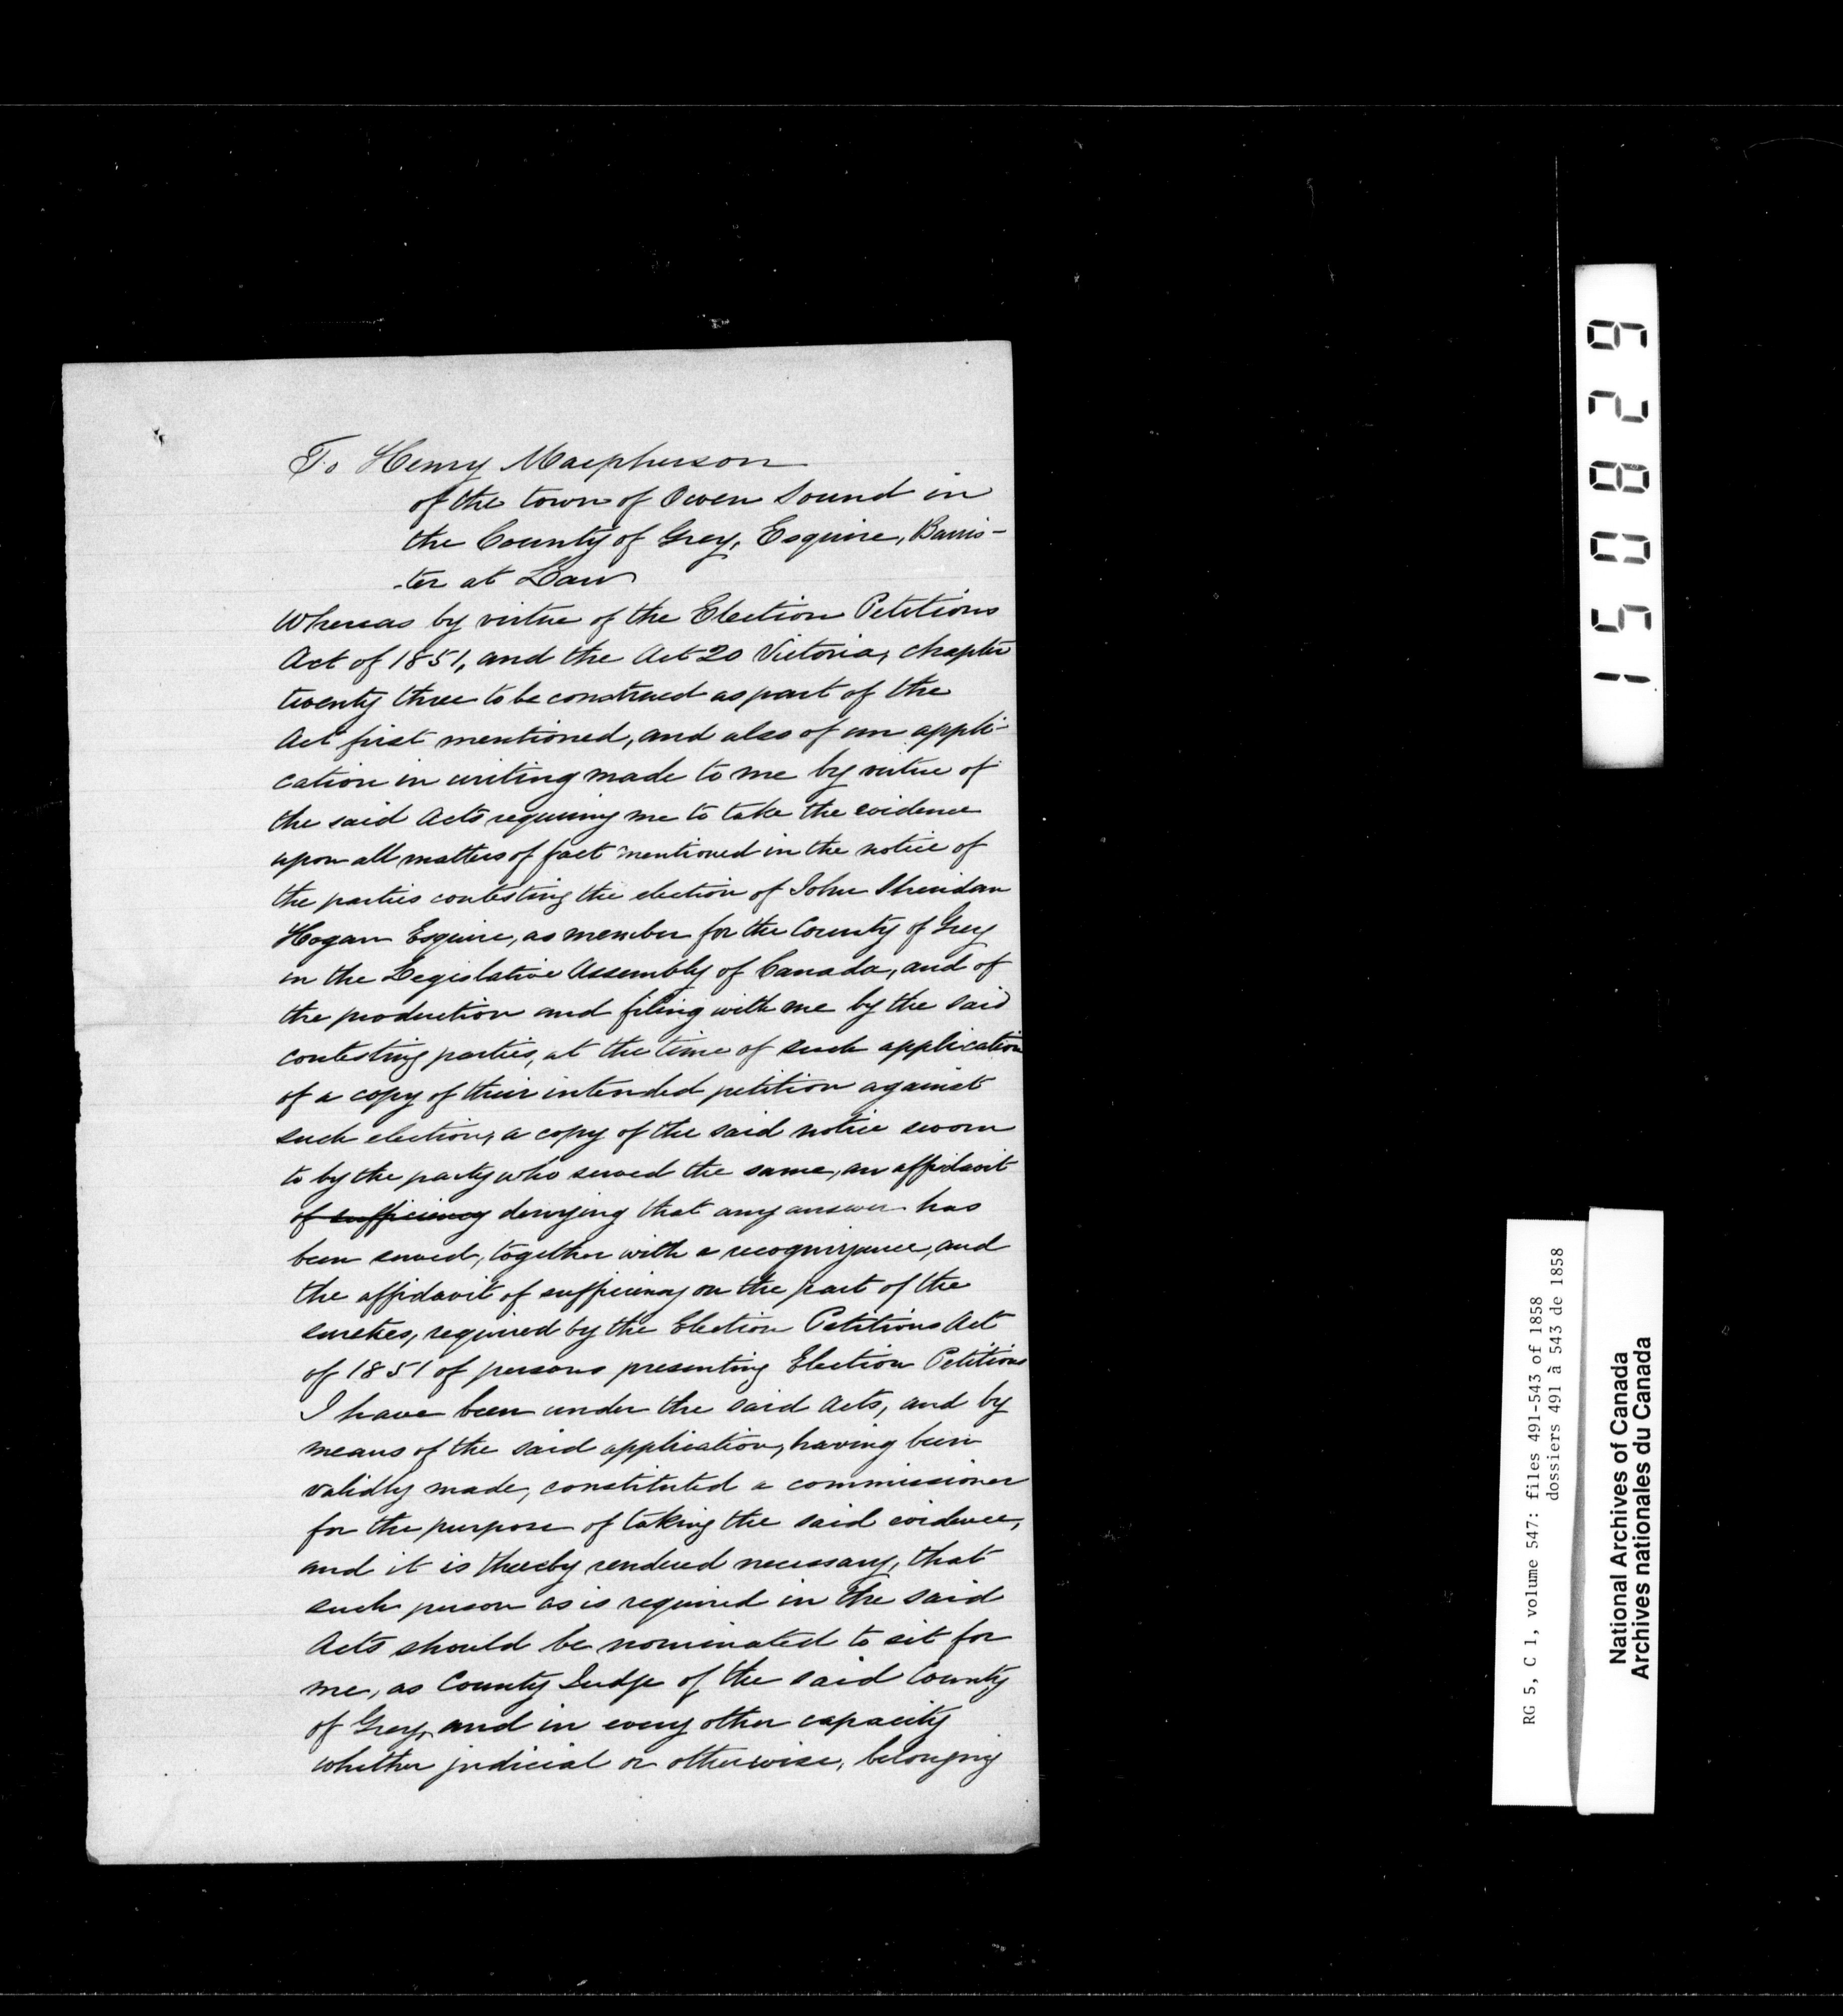 To Henry Macpherson
of the town of Owen Sound in
the County of Grey, Esquire, Barris-
-ter at Law
Whereas by virtue of the Election Petitions
Act of 1851, and the Act 20 Victoria, chapter
twenty three to be construed as part of the
Act first mentioned, and also of an appli-
cation in writing made to me by virtue of
the said Acts requiring me to take the evidence
upon all matters of fact mentioned in the notice of
the parties contesting the election of John Sheridan
Hogan Esquire, as member for the County of Grey
in the Legislative Assembly of Canada, and of
the production and filing with me by the said
contesting parties, at the time of such application
of a copy of their intended petition against
such election, a copy of the said notice sworn
to by the party who served the same, an affidavit
of sufficiency denying that any answer has
been served, together with a recognizance, and
the affidavit of sufficiency on the part of the
sureties, required by the Election Petitions Act
of 1851 of persons presenting Election Petitions
I have been under the said Acts, and by
means of the said application, having been
validly made, constituted a commissioner
for the purpose of taking the said evidence,
and it is thereby rendered necessary, that
such person as is required in the said
Acts should be nominated to sit for
me, as County Judge of the said County
of Grey, and in every other capacity
whether judicial or otherwise, belonging
150829
RG 5, C 1, volume 547: files 491-543 of 1858
dossiers 491 à 543 de 1858
National Archives of Canada
Archives nationales du Canada